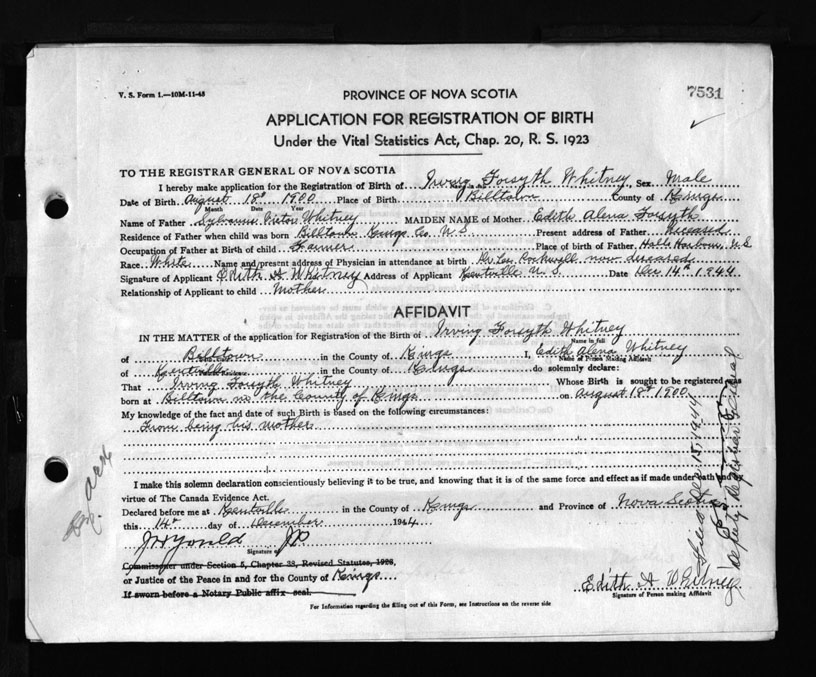 V. S. Form 1.—10M-11-43
PROVINCE OF NOVA SCOTIA
7531
APPLICATION FOR REGISTRATION OF BIRTH
Under the Vital Statistics Act, Chap. 20, R. S. 1923
TO THE REGISTRAR GENERAL OF NOVA SCOTIA
I hereby make application for the Registration of Birth of Irving Forsyth Whitney Sex Male
Date of Birth August 18th 1900 Place of Birth Billtown County of Kings
Month Date Year
Name of Father Sylvanus Whitney MAIDEN NAME of Mother Edith Alena Forsyth
Residence of Father when child was born Billtown Kings Co. N.S. Present address of Father Deceased
Occupation of Father at Birth of child Farmer Place of Birth of Father Halls Harbour N.S
Race White Name and/present address of Physician in attendance at birth Rockwell now deceased
Signature of Applicant Edith A Whitney Address of Applicant Kentville N.S. Date Dec 14th 1944
Relationship of Applicant to child Mother
AFFIDAVIT
IN THE MATTER of the application for Registration of the Birth of Irving Forsyth Whitney
Name in full
of Billtown in the County of Kings I, Edith Alena Whitney
Name of Person Making Affidavit
of Kentville in the County of Kings do solemnly declare:
That Irving Forsyth Whitney Whose Birth is sought to be registered was
born at Billtown in the County of Kings on August 18th 1900
My knowledge of the fact and date of such Birth is based on the following circumstances:
From being his mother
I make this solemn declaration conscientiously believing it to be true, and knowing that it is of the same force and effect as if made under oath and by
virtue of The Canada Evidence Act.
Declared before me at Kentville in the County of Kings and Province of Nova Scotia
this 14th day of December 1944
JP
Signature of
Commissioner under Section 5, Chapter 38, Revised Statutes, 1923,
or Justice of the Peace in and for the County of Kings
If sworn before a Notary Public affix seal.
Edith A Whitney
Signature of Person making Affidavit
For Information regarding the filling out of this Form, see Instructions on the reverse side
Filed Dec 15, 1944
Deputy Registrar General